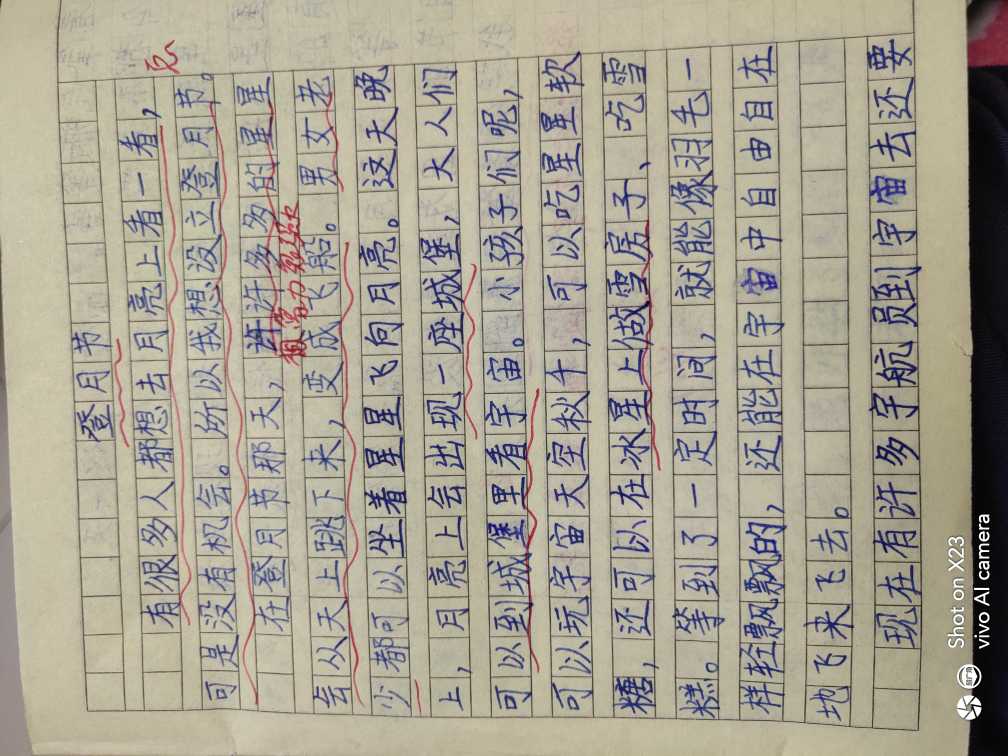 登月节
有很多人都想去月亮上看一看，
可是没有机会。所以我想设立登月节。
在登月节那天，许许多多的星星
会从天上跳下来，变成飞船。男女老
少都可以坐着星星飞向月亮。这天晚
上，月亮上会出现一座城堡，大人们
可以到城堡里看宇宙。小孩子们呢，
可以玩宇宙天空秋千，可以吃星星软
糖，还可以在冰星上做雪房子、吃雪
糕。等到了一定时间，就能像羽毛一
样轻飘飘的，还能在宇宙中自由自在
地飞来飞去。
现在有许多宇航员到宇宙去还要
Shot on X23
vivo AI camera